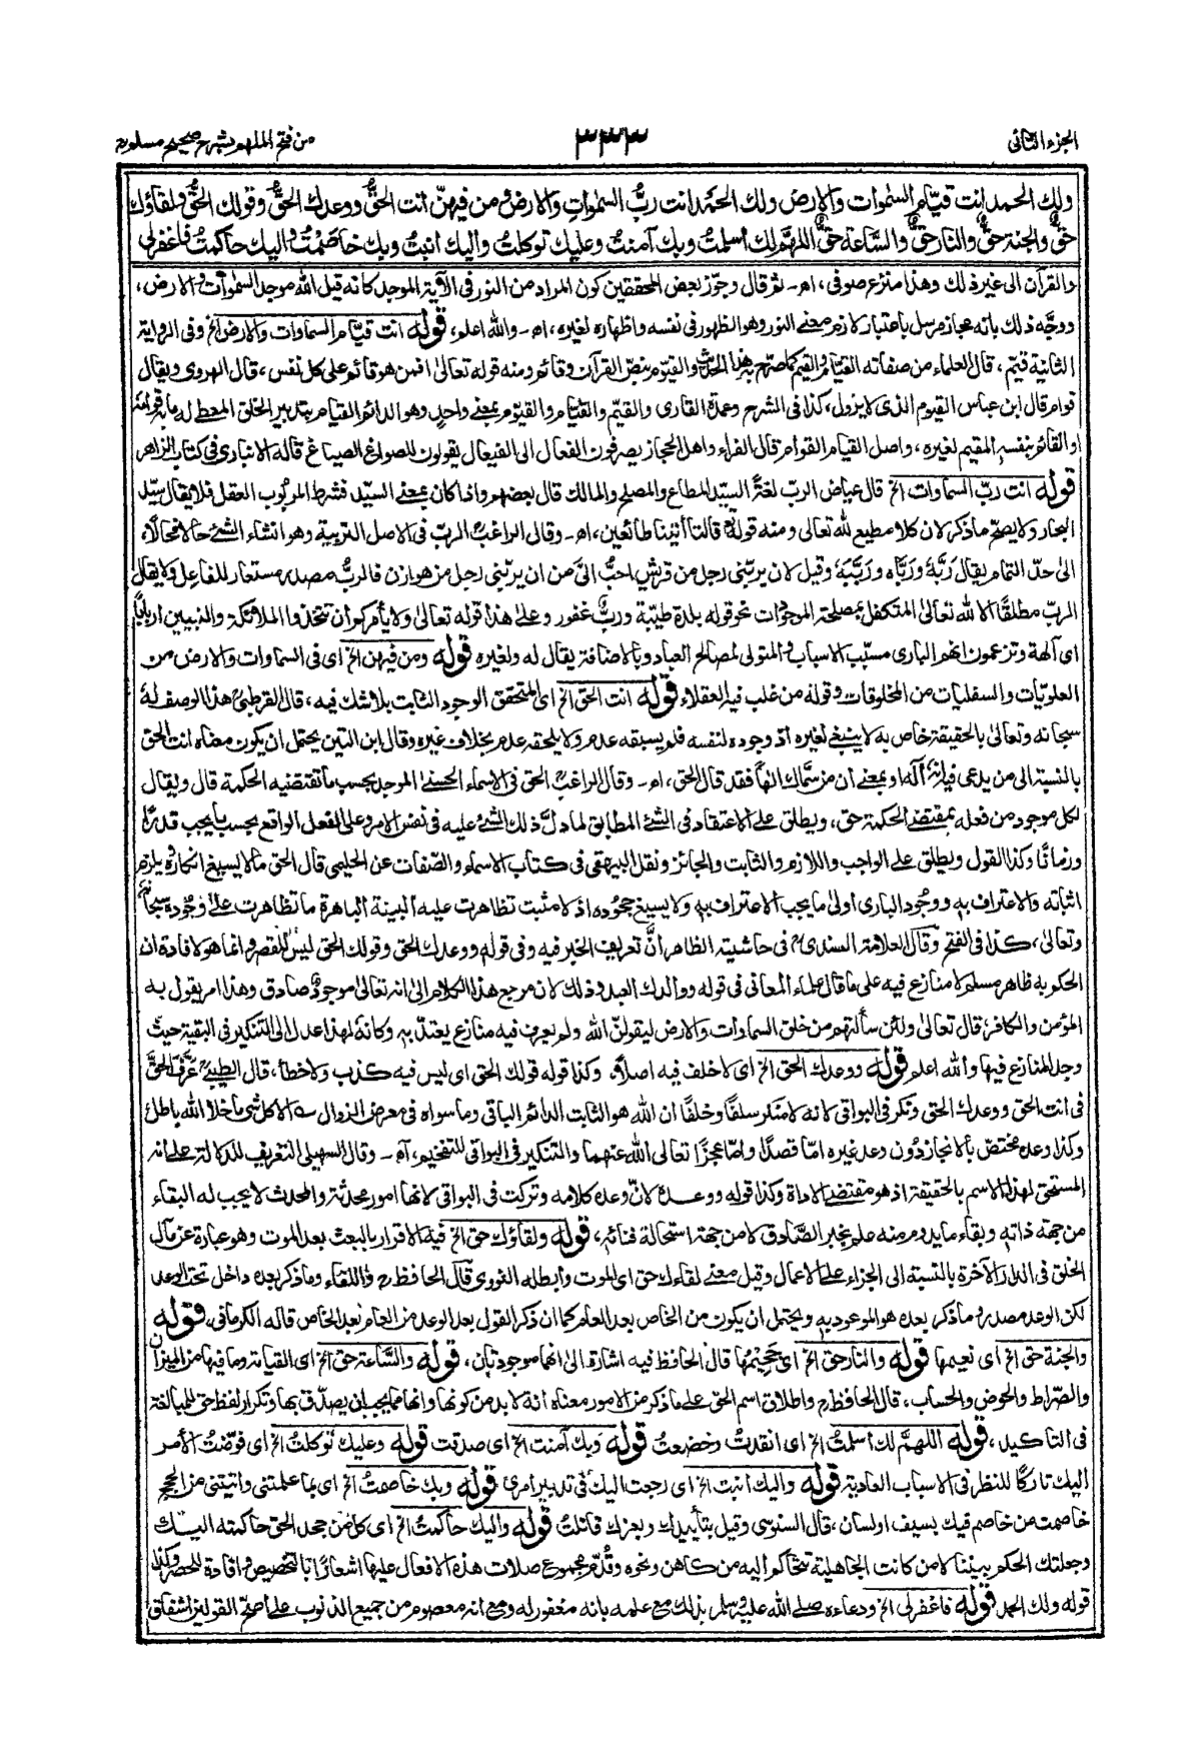 الجزء الثانی
٣٣٣
من فتح الملهم بشرح صحیح مسلم
ولك الحمد انت قیّام السمٰوات والارض ولك الحمد انت ربُّ السمٰواتِ والارض ومن فیهنّ انت الحقُّ ووعدك الحقُّ وقولك الحقُّ ولقاؤك
حقٌّ والجنة حقٌّ والنار حقٌّ والسّاعة حقٌّ اللهمّ لك اسلمتُ وبك آمنتُ وعلیك توكلتُ والیك انبتُ وبك خاصمتُ والیك حاكمتُ فاغفرلی
والقرآن الی غیر ذلك وهذا منزع صوفی، اھ۔ ثم قال وجوّز بعض المحققین كون المراد من النور فی الآیة الموجد كانه قیل الله موجد السمٰوات والارض،
ووجّه ذلك بانه مجاز مرسل باعتبار لازم معنی النور وهو الظهور فی نفسه واظهاره لغیره، اھ۔ والله اعلم، قوله انت قیّام السماوات والارض الخ وفی الروایة
الثانیة قیّم، قال العلماء من صفاته القیّام والقیم كما صرّح به هذا الحدیث والقیّوم بنصّ القرآن وقائم ومنه قوله تعالیٰ افمن هو قائم علی كل نفس، قال الهروی ویقال
قوام قال ابن عباس القیوم الذی لا یزول، كذا فی الشرح وعمدة القاری والقیّم والقیّام والقیّوم بمعنی واحدٍ وهو الدائم القیام بتدبیر الخلق المعطی له ما به قوامه
او القائم بنفسه المقیم لغیره، واصل القیام القوام قال الفراء واهل الحجاز یصرفون الفعال الی الفیعال یقولون للصواغ الصیاغ قاله الانباری فی كتاب الزاهر
قوله انت ربّ السماوات الخ قال عیاض الربّ لغةً السیّد المطاع والمصلح والمالك قال بعضهم واذا كان بمعنی السیّد فشرط المربوب العقل فلا یقال سیّد
الجبار ولا یصحّ ما ذكر لان كلا مطیع لله تعالی ومنه قوله قالتا أتینا طائعین، اھ۔ وقال الراغبؒ الربّ فی الاصل التربیة وهو انشاء الشیٔ حالا فحالًا،
الیٰ حدّ التمام یقال رَبَّهٗ ورَبَّاه ورَبَّبَهٗ وقیل لان یربّنی رجل من قریش احبُّ الیَّ من ان یربّنی رجل من هوازن فالربُّ مصدر مستعار للفاعل ولا یقال
الربّ مطلقًا الا لله تعالیٰ المتكفل بمصلحة الموجودات نحو قوله بلدة طیّبة وربٌّ غفور وعلیٰ هذا قوله تعالیٰ ولا یأمركم ان تتخذوا الملائكة والنبیین اربابًا
ای آلهة وتزعمون انهم الباری مسبّب الاسباب والمتولی لمصالح العباد وبالاضافة یقال له ولغیره قوله ومن فیهن الخ ای فی السماوات والارض من
العلویّات والسفلیات من المخلوقات وقوله من غلب فیه العقلاء قوله انت الحق الخ ای المتحقق الوجود الثابت بلا شك فیه، قال القرطبیؒ هذا الوصف له
سبحانه وتعالیٰ بالحقیقة خاص به لا ینبغی لغیره اذ وجوده لنفسه فلم یسبقه عدم ولا یلحقه عدم بخلاف غیره وقال ابن التین یحتمل ان یكون معناه انت الحق
بالنسبة الی من یدعی فیه انه آله او بمعنی ان من سمّاك الهًا فقد قال الحق، اھ۔ وقال الراغبؒ الحق فی الاسماء الحسنیٰ الموجد بحسب ما تقتضیه الحكمة قال ویقال
لكل موجود من فعله بمقتضی الحكمة حق، ویطلق علی الاعتقاد فی الشیٔ المطابق لما دلّ ذلك الشیٔ علیه فی نفس الامر وعلی الفعل الواقع بحسب ما یجب قدرًا
وزمانًا وكذا القول ویطلق علی الواجب واللازم والثابت والجائز ونقل البیهقی فی كتاب الاسماء والصّفات عن الحلیمی قال الحق ما لا یسیغ انكاره ویلزم
اثباته والاعتراف به ووجود الباری اولیٰ ما یجب الاعتراف به ولا یسیغ جحوده اذ لا مثبت تظاهرت علیه البینة الباهرة ما تظاهرت علیٰ وجوده سبحانه
وتعالیٰ، كذا فی الفتح وقال العلامة السندیؒ فی حاشیته الظاهر انَّ تعریف الخبر فیه وفی قوله ووعدك الحق وقولك الحق لیس للقصر وانما هو لافادة ان
الحكم به ظاهر مسلم لا منازع فیه علی ما قال علماء المعانی فی قوله ووالدك العبد وذلك لان مرجع هذا الكلام الیٰ انه تعالیٰ موجودٌ صادق وهذا امر یقول به
المؤمن والكافر، قال تعالیٰ ولئن سألتهم من خلق السماوات والارض لیقولنّ الله ولم یعرف فیه منازع یعتدّ به وكانه لهذا عدل الی التنكیر فی البقیة حیث
وجد المنازع فیها والله اعلم قوله ووعدك الحق الخ ای لا خلف فیه اصلًا، وكذا قوله قولك الحق ای لیس فیه كذب ولا خطأ، قال الطیبیؒ عرّف الحقَّ
فی انت الحق ووعدك الحق ونكر فی البواقی لانه لا منكر سلفًا وخلفًا ان الله هو الثابت الدائم الباقی وما سواه فی معرض الزوال ؎ الا كل شیٔ ما خلا الله باطل
وكذا وعده مختصّ بالانجاز دون وعد غیره امّا قصدًا وامّا عجزًا تعالی الله عنهما والتنكیر فی البواقی للتفخیم، اھ۔ وقال السهیلی التعریف للدلالة علی انه
المستحق لهذا الاسم بالحقیقة اذ هو مقتضی الاداة وكذا قوله ووعده لانّ وعده كلامه وتركت فی البواقی لانها امور محدثة والمحدث لا یجب له البقاء
من جهة ذاته وبقاء ما یدوم منه علم بخبر الصّادق لا من جهة استحالة فنائه، قوله ولقاؤك حق الخ فیه الاقرار بالبعث بعد الموت وهو عبارة عن مآل
الخلق فی الدار الآخرة بالنسبة الی الجزاء علی الاعمال وقیل معنی لقاءك حق ای الموت وابطله النووی قال الحافظؒ واللقاء وما ذكر بعده داخل تحت الوعد
لكن الوعد مصدر وما ذكر بعده هو الموعود به ویحتمل ان یكون من الخاص بعد العام كما ان ذكر القول بعد الوعد من العام بعد الخاص قاله الكرمانی، قوله
والجنة حق الخ ای نعیمها قوله والنار حق الخ ای جحیمُها قال الحافظ فیه اشارة الیٰ انهما موجودتان، قوله والسّاعة حق الخ ای القیامة وما فیها من المیزان
والصّراط والحوض والحساب، قال الحافظؒ واطلاق اسم الحق علی ما ذكر من الامور معناه انه لا بد من كونها وانها مما یجب ان یصدّق بها وتكرار لفظ حق للمبالغة
فی التاكید، قوله اللهمّ لك اسلمتُ الخ ای انقدتُ وخضعتُ قوله وبك آمنت الخ ای صدقت قوله وعلیك توكلتُ الخ ای فوّضتُ الامر
الیك تاركًا للنظر فی الاسباب العادیة قوله والیك انبت الخ ای رجعت الیك فی تدبیر امری قوله وبك خاصمتُ الخ ای بما علمتنی واتیتنی من الحجج
خاصمت من خاصم فیك بسیف او لسان، قال السنوسی وقیل بتأییدك وبعزك قاتلتُ قوله والیك حاكمتُ الخ ای كل من جحد الحق حاكمته الیك
وجعلتك الحكم بیننا لا من كانت الجاهلیة تتحاكم الیه من كاهن ونحوه وقُدّم مجموع صلات هذه الافعال علیها اشعارًا بالتخصیص وافادة للحصر وكذا
قوله ولك الحمد قوله فاغفرلی الخ ودعاءه صلی الله علیه وسلم بذلك مع علمه بانه مغفور له ومع انه معصوم من جمیع الذنوب علی اصحّ القولین اشفاق